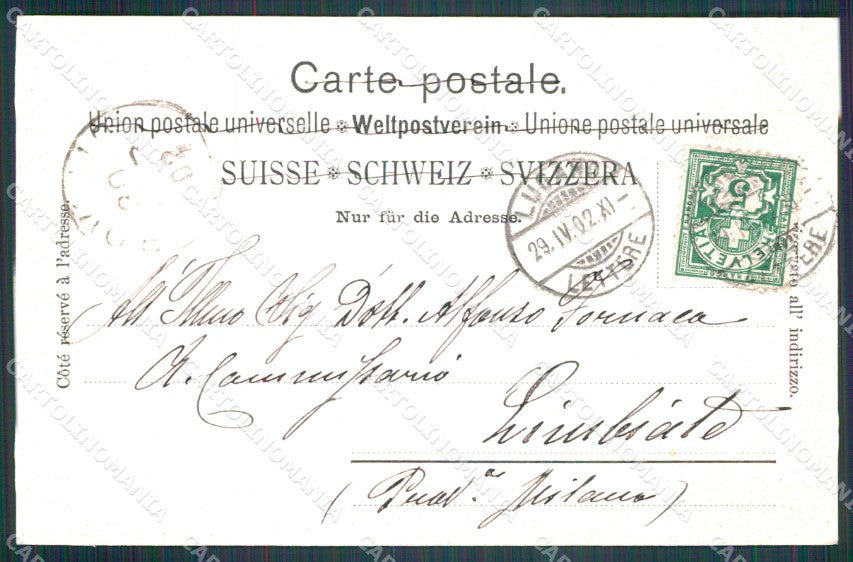 Carte postale.
Union postale universelle ※ Weltpostverein ※ Unione postale universale
SUISSE ※ SCHWEIZ ※ SVIZZERA
Nur für die Adresse.
Côté réservé à l'adresse.
29.IV.02.XI-
LETTERE
HELVETIA
5
all' indirizzo.
All' Illmo Sig Dott. Alfonso Fornaca
R. Commissario
Limbiate
(Prov.a Milano)
CARTOLINOMANIA